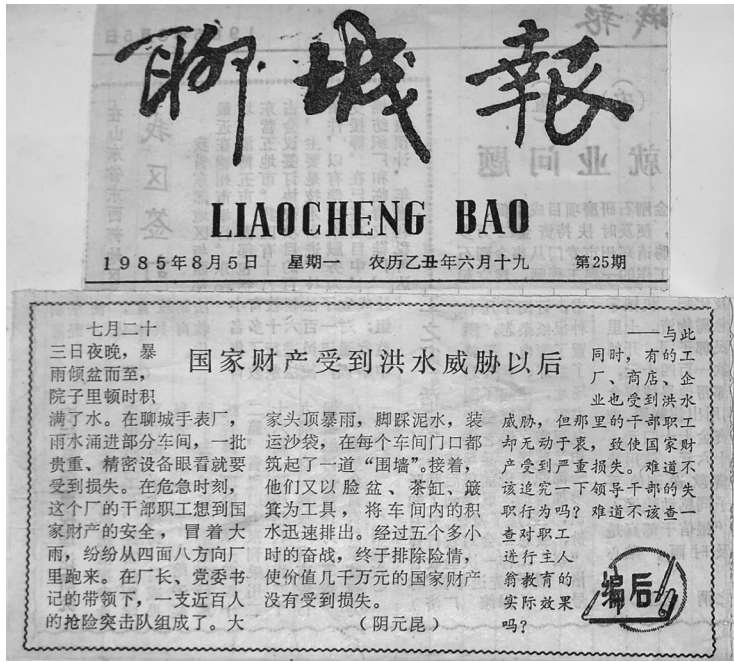 聊城報
LIAOCHENG BAO
1985年8月5日 星期一 农历乙丑年六月十九 第25期
国家财产受到洪水威胁以后
七月二十
三日夜晚，暴
雨倾盆而至，
院子里顿时积
满了水。在聊城手表厂，
雨水涌进部分车间，一批
贵重、精密设备眼看就要
受到损失。在危急时刻，
这个厂的干部职工想到国
家财产的安全，冒着大
雨，纷纷从四面八方向厂
里跑来。在厂长、党委书
记的带领下，一支近百人
的抢险突击队组成了。大
家头顶暴雨，脚踩泥水，装
运沙袋，在每个车间门口都
筑起了一道“围墙”。接着，
他们又以脸盆、茶缸、簸
箕为工具，将车间内的积
水迅速排出。经过五个多小
时的奋战，终于排除险情，
使价值几千万元的国家财产
没有受到损失。
（阴元昆）
——与此
同时，有的工
厂、商店、企
业也受到洪水
威胁，但那里的干部职工
却无动于衷，致使国家财
产受到严重损失。难道不
该追究一下领导干部的失
职行为吗？难道不该查一
查对职工
进行主人
翁教育的
实际效果
吗？
编后
就业问题
我区签